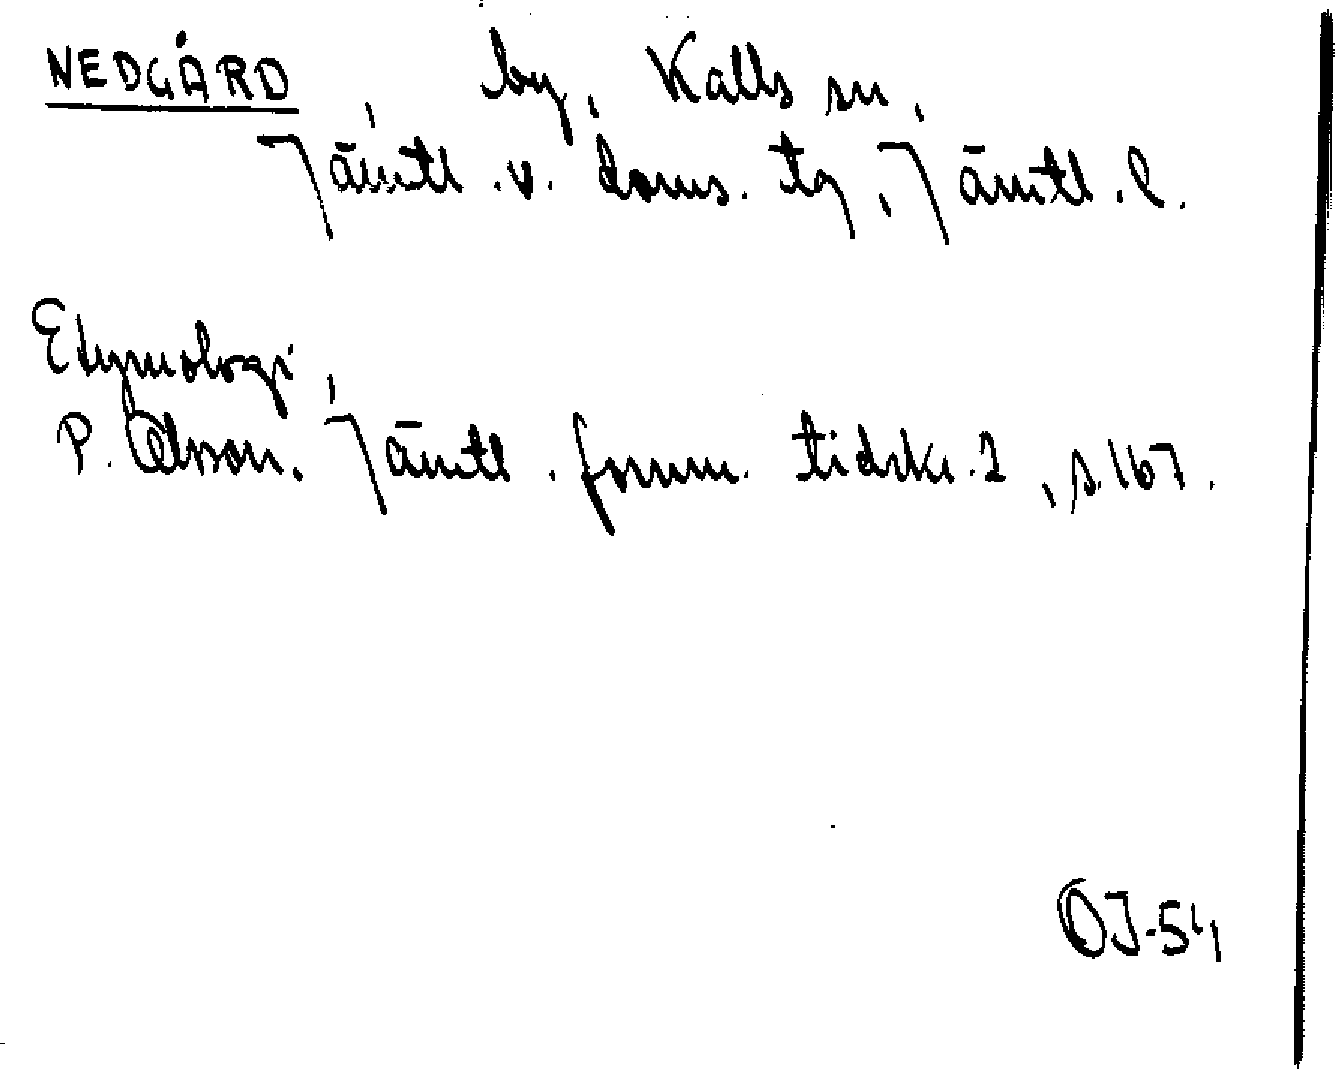 NEDGÅRD, by, Kalls sn,
Jämtl. v. doms. tg, Jämtl. l.
Etymologi,
P. Olsson. Jämtl. fornm. tidskr. 2, s. 167.
OJ-54